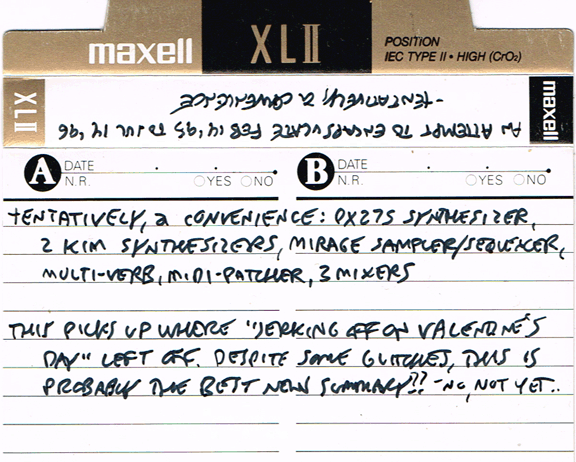 maxell XLII POSITION
IEC TYPE II • HIGH (CrO₂)
XLII
maxell
AN ATTEMPT TO ENCAPSULATE FEB 14, 95 TO JUL 14, 96
-tENTATIVELY, a CONVENIENCE
A DATE . .
N.R. YES NO
B DATE . .
N.R. YES NO
tENTATIVELY, a CONVENIENCE: DX27S SYNTHESIZER,
2 KIM SYNTHESIZERS, MIRAGE SAMPLER/SEQUENCER,
MULTI-VERB, MIDI-PATCHER, 3 MIXERS
THIS PICKS UP WHERE "JERKING OFF ON VALENTINE'S
DAY" LEFT OFF. DESPITE SOME GLITCHES, THIS IS
PROBABLY THE BEST NEW SUMMARY?? - NO, NOT YET..